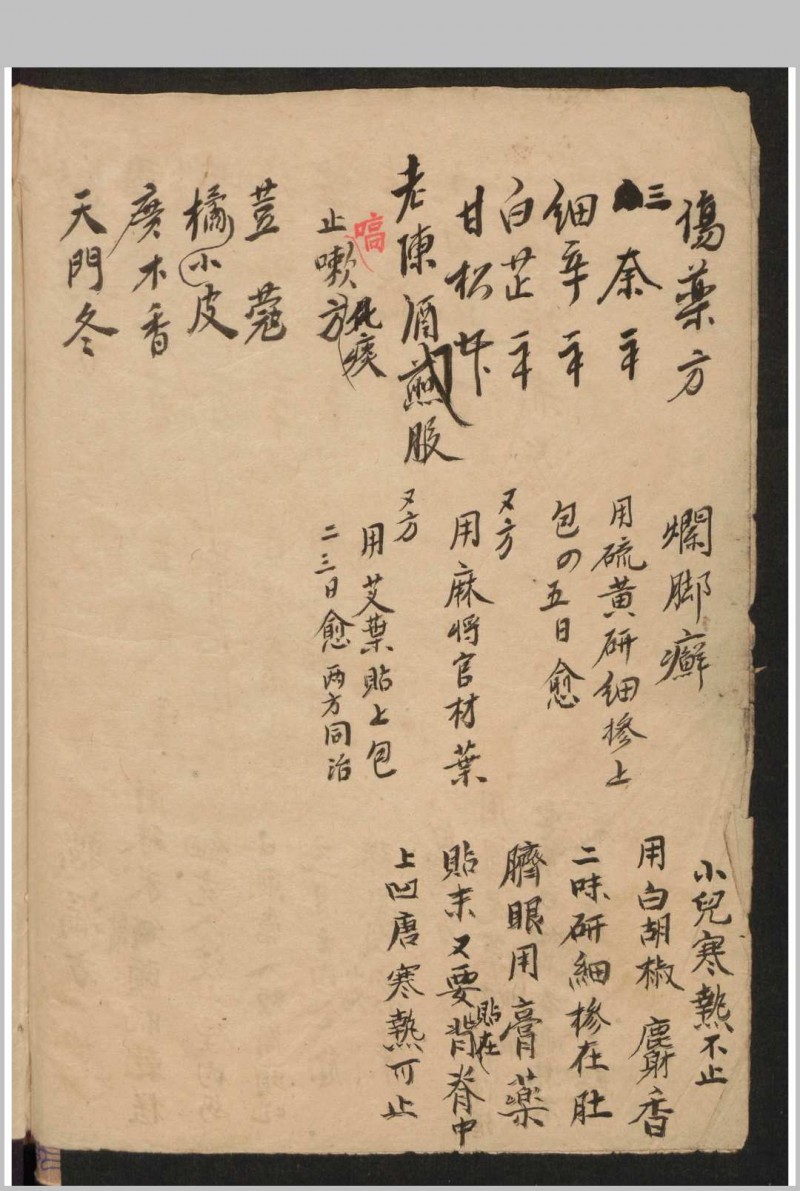 傷藥方
三奈
細辛
白芷
甘松
老陳酒煎服
止嗽方
嗃
化痰
荳蔻
橘小皮
廣木香
天門冬
爛脚癬
用硫黄研細摻上
包の五日愈
又方
用麻將官材葉
又方
用艾葉貼上包
二三日愈两方同治
小兒寒熱不止
用白胡椒麝香
二味研細摻在肚
臍眼用膏藥
貼末又要貼在背脊中
上凹唐寒熱可止